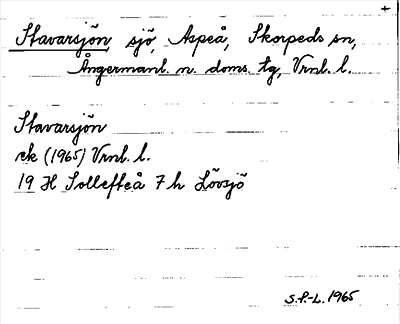 Stavarsjön sjö, Aspeå, Skorpeds sn,
Ångermanl. n. doms. tg, Vrnl. l.
Stavarsjön
ek (1965) Vrnl. l.
19 H Sollefteå 7 h Lövsjö
S.P.-L. 1965